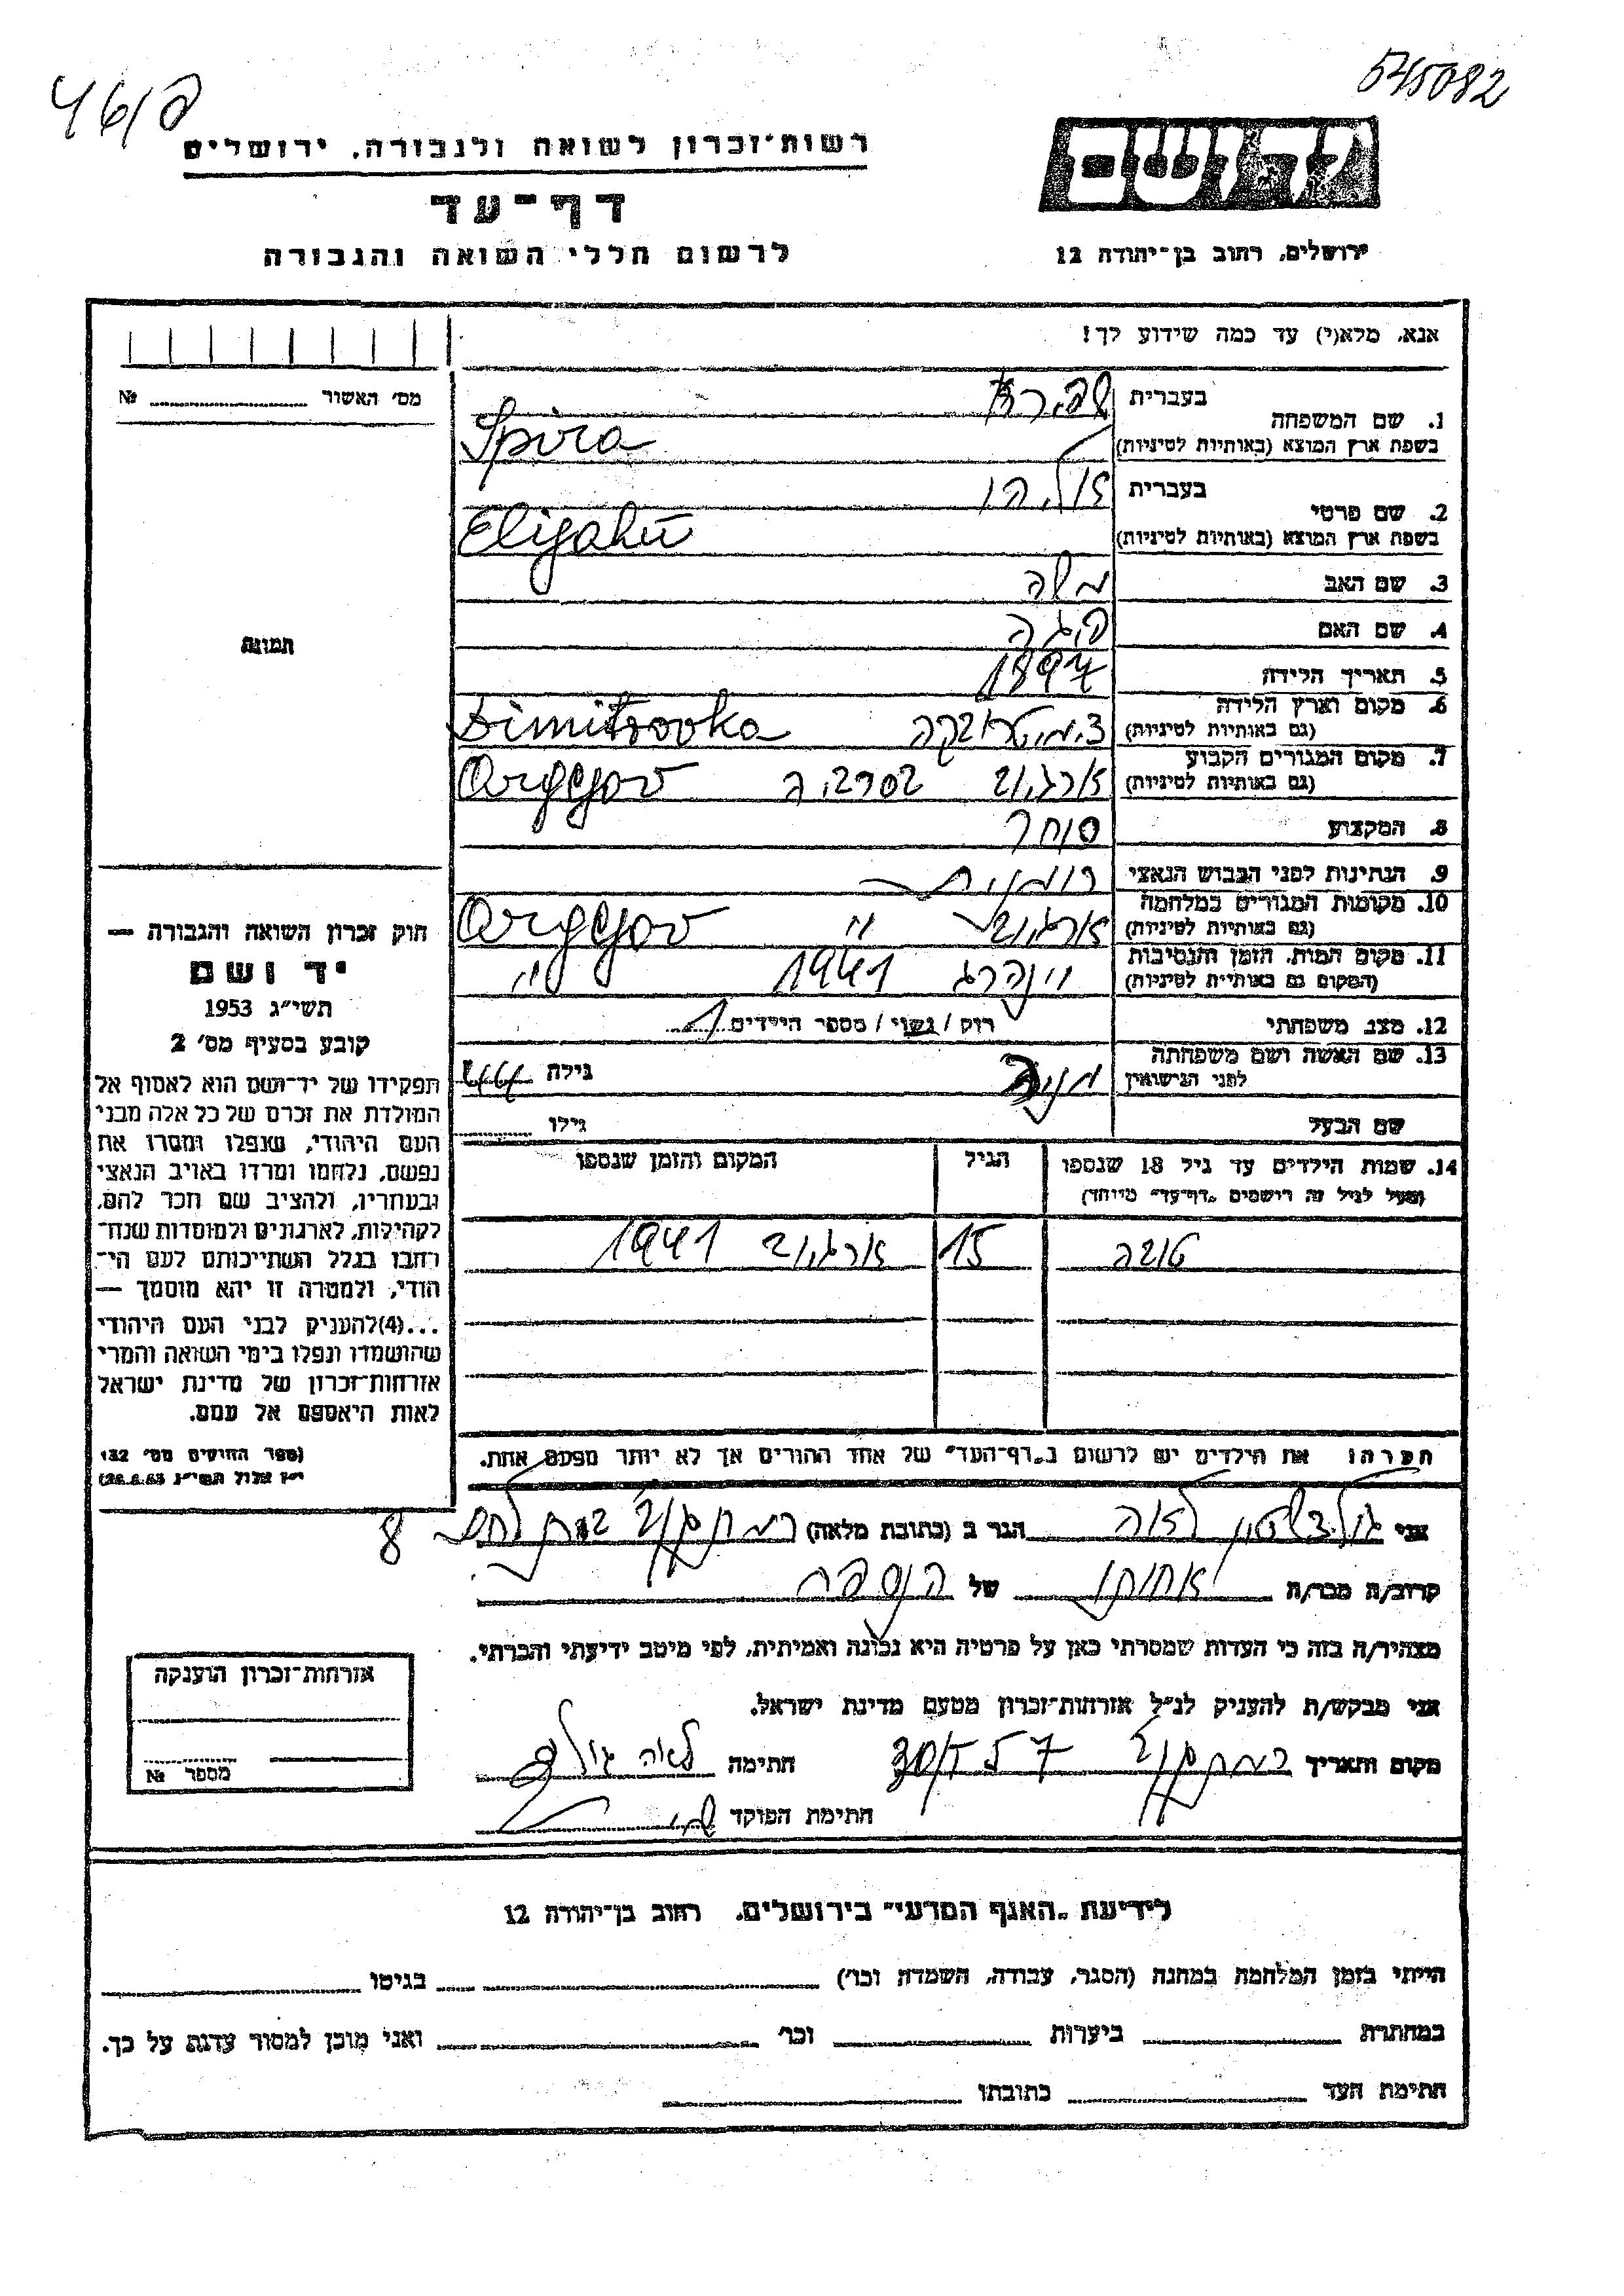 545082
לרושם
רשות־זכרון לשואה ולגבורה, ירושלים
דף־עד
ירושלים, רחוב בן־יהודה 12
לרשום חללי השואה והגבורה
אנא, מלא(י) עד כמה שידוע לך!
מס׳ האשור № ........
1. שם המשפחה
בעברית שפירא
בשפת ארץ המוצא (באותיות לטיניות) Spira
2. שם פרטי
בעברית אליהו
בשפת ארץ המוצא (באותיות לטיניות) Eliyahu
3. שם האב משה
4. שם האם
תמונה
5. תאריך הלידה 1897
6. מקום וארץ הלידה
(גם באותיות לטיניות) דימיטרובקה Dimitrovka
7. מקום המגורים הקבוע
(גם באותיות לטיניות) אורגייב בסרביה Orgejov
8. המקצוע סוחר
9. הנתינות לפני הכבוש הנאצי רומנית
10. מקומות המגורים במלחמה
(גם באותיות לטיניות) אורגייב " Orgejov
11. מקום המות, הזמן והנסיבות
(המקום גם באותיות לטיניות) 1941 "
12. מצב משפחתי רווק / נשוי / מספר הילדים 1
13. שם האשה ושם משפחתה
לפני הנישואין גילה 44
שם הבעל גילו ........
14. שמות הילדים עד גיל 18 שנספו הגיל המקום והזמן שנספו
(מעל לגיל זה רושמים „דף־עד״ מיוחד)
טובה 15 אורגייב 1941
חוק זכרון השואה והגבורה —
יד ושם
תשי״ג 1953
קובע בסעיף מס׳ 2
תפקידו של יד־ושם הוא לאסוף אל
המולדת את זכרם של כל אלה מבני
העם היהודי, שנפלו ומסרו את
נפשם, נלחמו ומרדו באויב הנאצי
ובעוזריו, ולהציב שם וזכר להם,
לקהילות, לארגונים ולמוסדות שנח־
רבו בגלל השתייכותם לעם הי־
הודי, ולמטרה זו יהא מוסמך —
...(4)להעניק לבני העם היהודי
שהושמדו ונפלו בימי השואה והמרי
אזרחות־זכרון של מדינת ישראל
לאות היאספם אל עמם.
(ספר החוקים מס׳ 132
י״ז אלול תשי״ג 28.8.53)
הערה: את הילדים יש לרשום ב„דף־העד״ של אחד ההורים אך לא יותר מפעם אחת.
אני גולדשטיין לאה הגר ב (כתובת מלאה) 8
קרוב/ה מכר/ה של הנספה
מצהיר/ה בזה כי העדות שמסרתי כאן על פרטיה היא נכונה ואמיתית, לפי מיטב ידיעתי והכרתי.
אני מבקש/ת להעניק לנ״ל אזרחות־זכרון מטעם מדינת ישראל.
מקום ותאריך חתימה לאה גולד
חתימת הפוקד
אזרחות־זכרון הוענקה
מספר №
לידיעת „האגף המדעי״ בירושלים, רחוב בן־יהודה 12
הייתי בזמן המלחמה במחנה (הסגר, עבודה, השמדה וכו׳) ........ בגיטו ........
במחתרת ........ ביערות ........ וכו׳ ........ ואני מוכן למסור עדות על כך.
חתימת העד ........ כתובתו ........